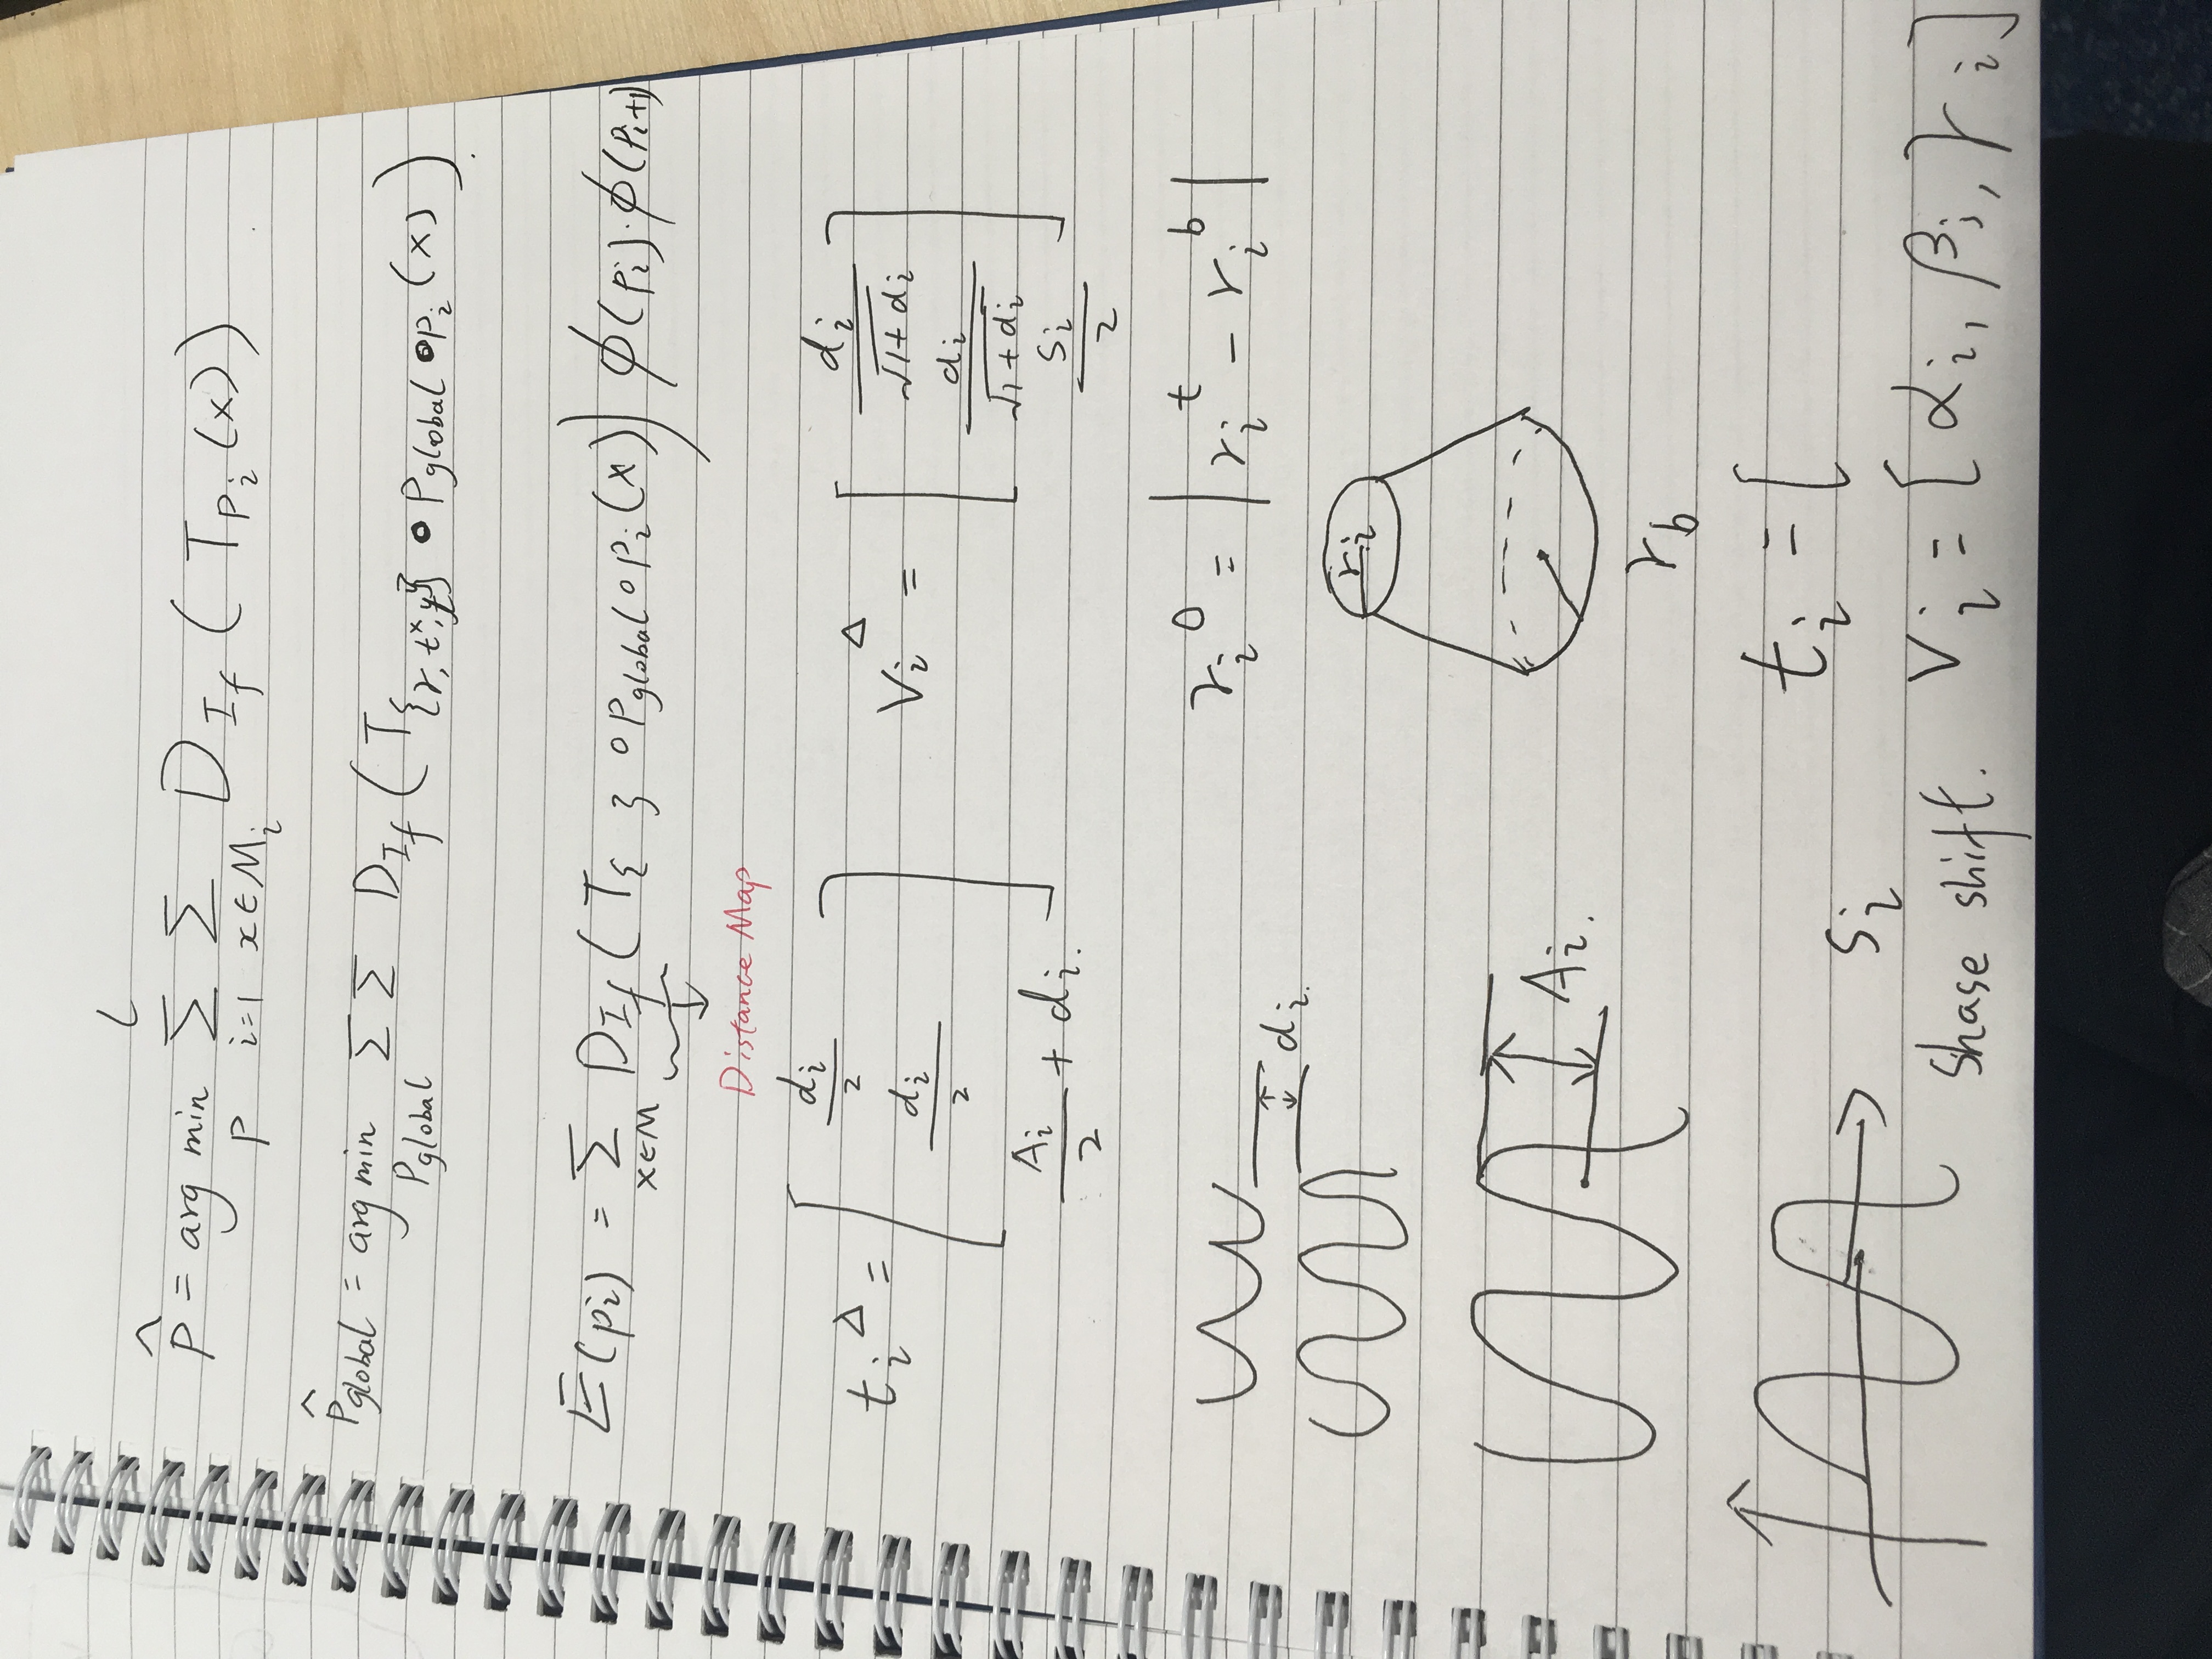 p̂ = arg min_p Σ_{i=1}^{L} Σ_{x∈M_i} D_{I_f} ( T_{p_i} (x) )
p̂_global = arg min_{p_global} Σ Σ D_{I_f} ( T_{{r, t^x, y}} ∘ p_global ∘ p_i (x) ).
E(p_i) = Σ_{x∈M} D_{I_f} ( T_{ } ∘ p_global ∘ p_i (x) ) ϕ(p_i) · ϕ(p_{i+1})
Distance Map
t_i^Δ = [ d_i/2, d_i/2, A_i/2 + d_i. ]
V_i^Δ = [ d_i/√(1+d_i), d_i/√(1+d_i), s_i/2 ]
r_i^0 = | r_i^t − r_i^b |
d_i.
r_i
A_i.
r_b
t_i = [
s_i
Shase shift.
V_i = [ α_i, β_i, γ_i ]